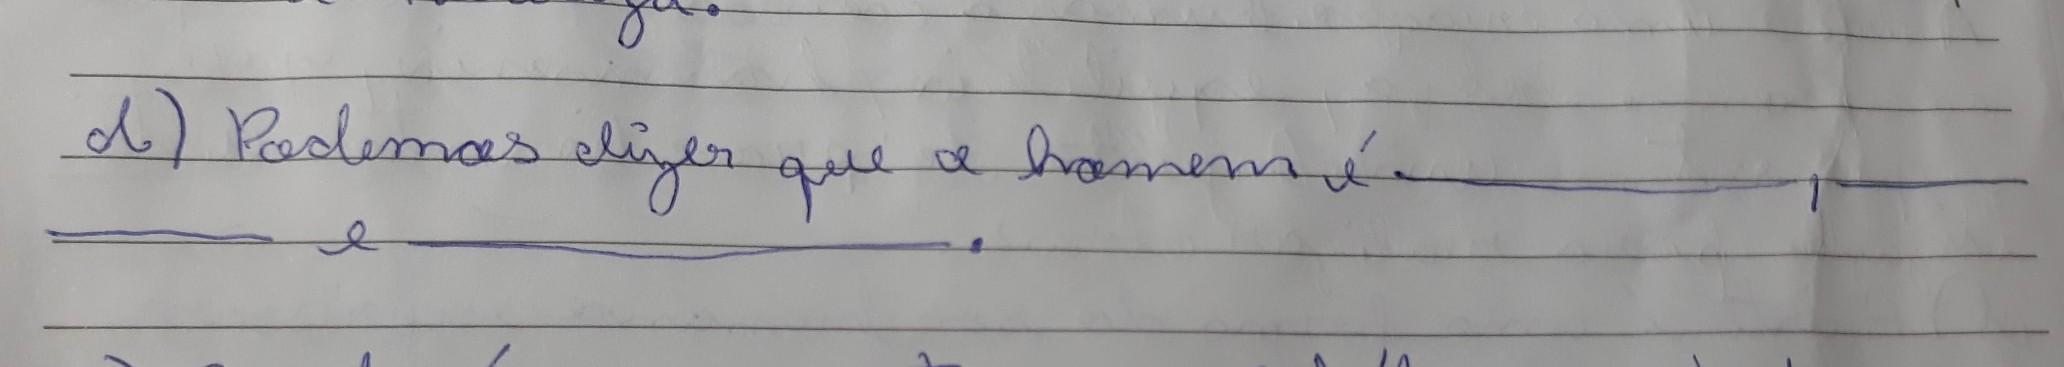 d) Podemos dizer que o homem é ________, ____
____ e ________.